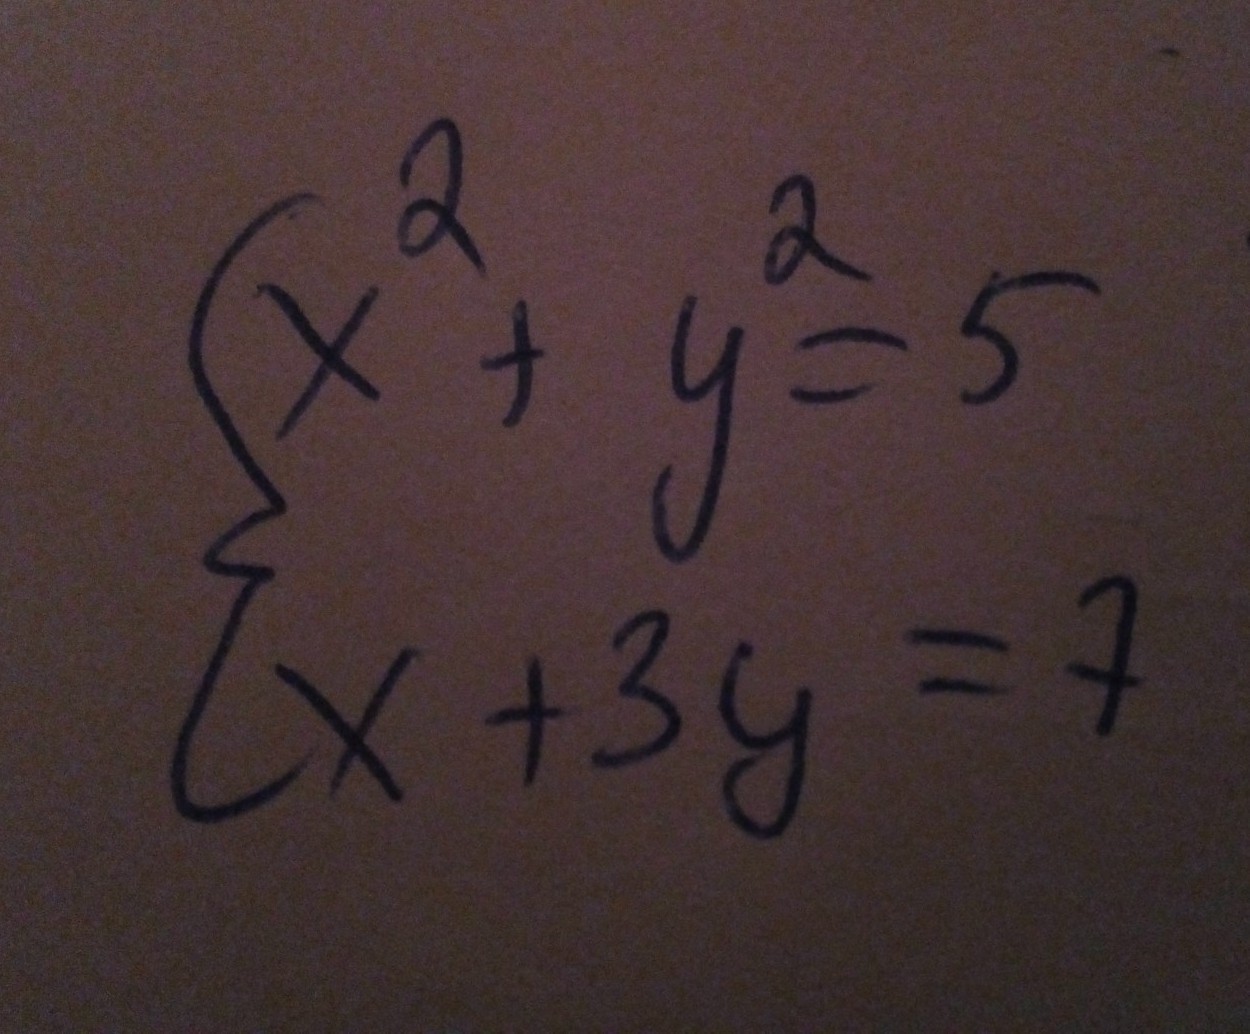 x² + y² = 5
x + 3y = 7